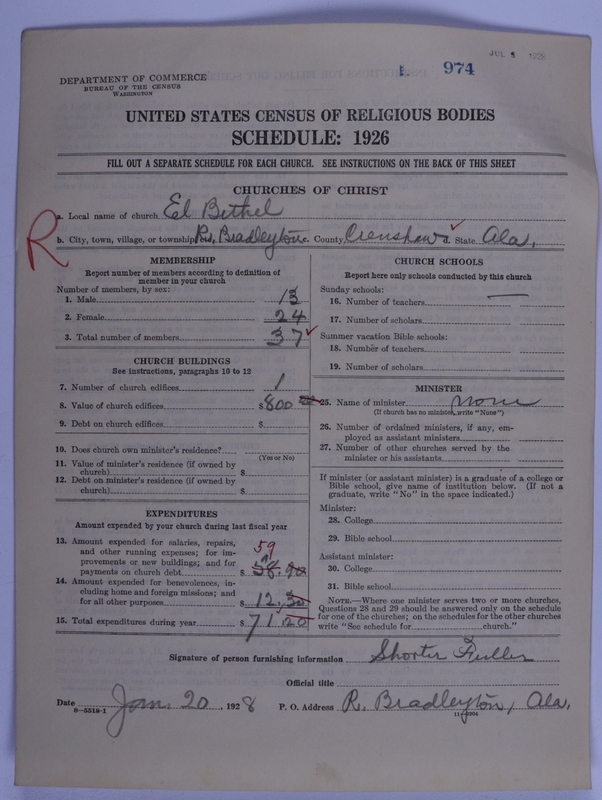 JUL 5 1928
974
DEPARTMENT OF COMMERCE
BUREAU OF THE CENSUS
WASHINGTON
UNITED STATES CENSUS OF RELIGIOUS BODIES
SCHEDULE: 1926
FILL OUT A SEPARATE SCHEDULE FOR EACH CHURCH. SEE INSTRUCTIONS ON THE BACK OF THIS SHEET
CHURCHES OF CHRIST
R
a. Local name of church El Bethel
b. City, town, village, or township R, Bradleyton c. County, Crenshaw d. State Ala,
MEMBERSHIP
Report number of members according to definition of
member in your church
Number of members, by sex:
1. Male 13
2. Female 24
3. Total number of members 37
CHURCH BUILDINGS
See instructions, paragraphs 10 to 12
7. Number of church edifices 1
8. Value of church edifices $800
9. Debt on church edifices $
10. Does church own minister's residence?
(Yes or No)
11. Value of minister's residence (if owned by
church) $
12. Debt on minister's residence (if owned by
church) $
EXPENDITURES
Amount expended by your church during last fiscal year
13. Amount expended for salaries, repairs,
and other running expenses; for im-
provements or new buildings; and for
59
payments on church debt $58.90
14. Amount expended for benevolences, in-
cluding home and foreign missions; and
for all other purposes $12.30
15. Total expenditures during year $71.20
CHURCH SCHOOLS
Report here only schools conducted by this church
Sunday schools:
16. Number of teachers —
17. Number of scholars
Summer vacation Bible schools:
18. Number of teachers
19. Number of scholars
MINISTER
25. Name of minister none
(If church has no minister, write "None")
26. Number of ordained ministers, if any, em-
ployed as assistant ministers
27. Number of other churches served by the
minister or his assistants
If minister (or assistant minister) is a graduate of a college or
Bible school, give name of institution below. (If not a
graduate, write "No" in the space indicated.)
Minister:
28. College
29. Bible school
Assistant minister:
30. College
31. Bible school
NOTE.—Where one minister serves two or more churches,
Questions 28 and 29 should be answered only on the schedule
for one of the churches; on the schedules for the other churches
write "See schedule for church."
Signature of person furnishing information Shorter Fuller
Official title
Date Jan. 20, 1928 P. O. Address R. Bradleyton, Ala.
8-5318-1